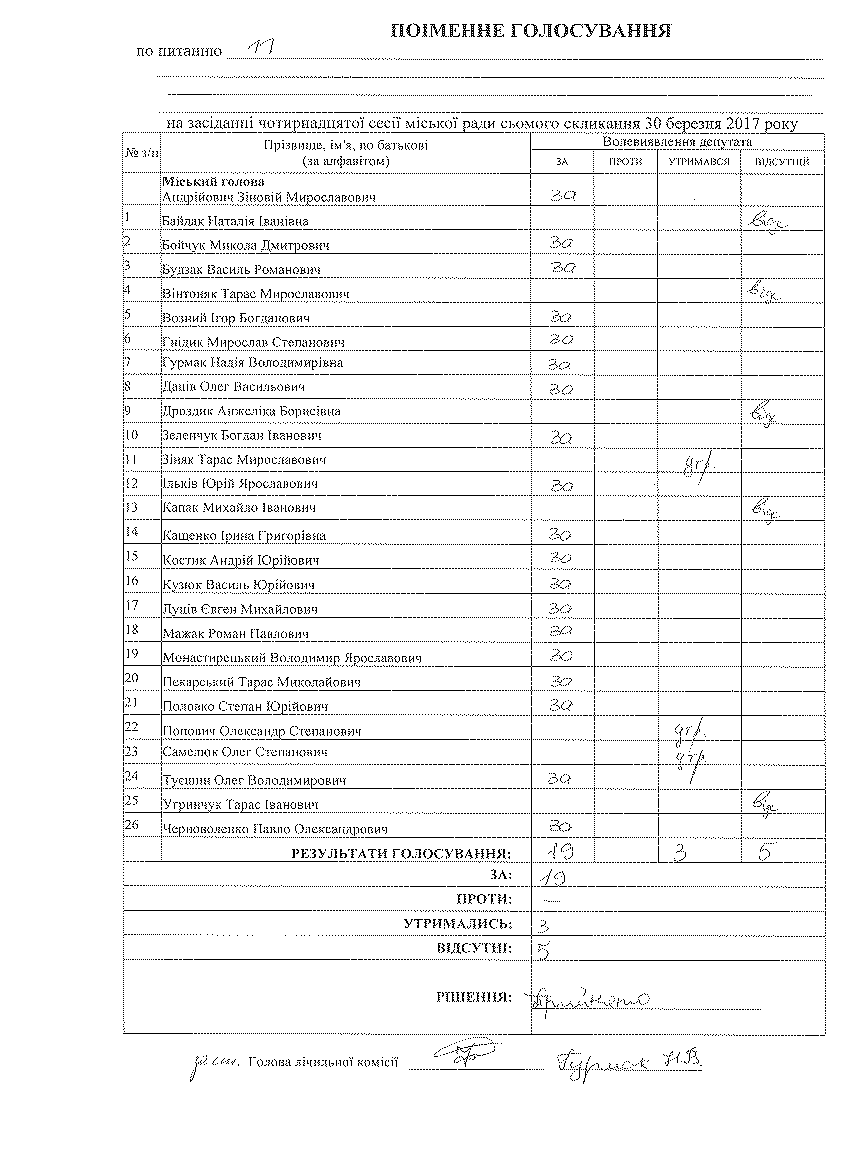 ПОІМЕННЕ ГОЛОСУВАННЯ
по питанню 11
на засіданні чотирнадцятої сесії міської ради сьомого скликання 30 березня 2017 року
№ з/п Прізвище, ім'я, по батькові (за алфавітом) Волевиявлення депутата
ЗА ПРОТИ УТРИМАВСЯ ВІДСУТНІЙ
Міський голова
Андрійович Зіновій Мирославович за
1 Байдак Наталія Іванівна від
2 Бойчук Микола Дмитрович за
3 Будзак Василь Романович за
4 Вінтоняк Тарас Мирославович від
5 Возний Ігор Богданович за
6 Гнідик Мирослав Степанович за
7 Гурмак Надія Володимирівна за
8 Даців Олег Васильович за
9 Дроздик Анжеліка Борисівна від
10 Зеленчук Богдан Іванович за
11 Зіняк Тарас Мирославович утр.
12 Ільків Юрій Ярославович за
13 Капак Михайло Іванович від
14 Кащенко Ірина Григорівна за
15 Костик Андрій Юрійович за
16 Кузюк Василь Юрійович за
17 Луців Євген Михайлович за
18 Мажак Роман Павлович за
19 Монастирецький Володимир Ярославович за
20 Пекарський Тарас Миколайович за
21 Половко Степан Юрійович за
22 Попович Олександр Степанович утр.
23 Самелюк Олег Степанович утр.
24 Туєшин Олег Володимирович за
25 Угринчук Тарас Іванович від
26 Черноволенко Павло Олександрович за
РЕЗУЛЬТАТИ ГОЛОСУВАННЯ: 19 3 5
ЗА: 19
ПРОТИ: —
УТРИМАЛИСЬ: 3
ВІДСУТНІ: 5
РІШЕННЯ: Прийнято
Голова лічильної комісії Гурмак Н.В.